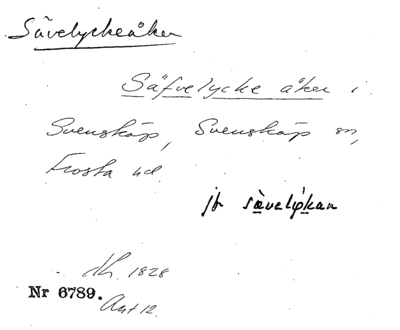 Sävelyckeåker
Säfvelycke åker i
Svensköp, Svensköp sn,
Frosta hd.
jfr sävelykan
1828
Nr 6789.
Akt 12.